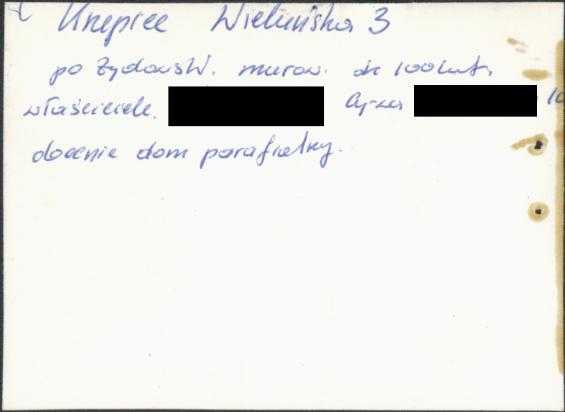 Krzepice Wieluńska 3
po żydowsk. murow. ok 100 lat.
właściciele.
obecnie dom parafialny.